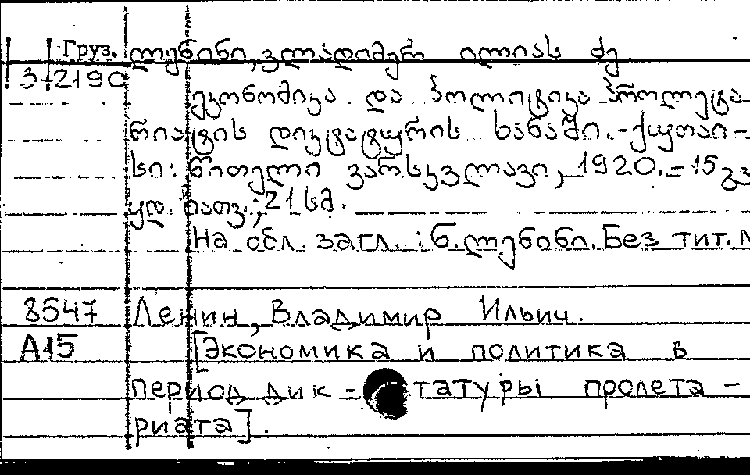 Груз. ლენინი, ვლადიმერ ილიას ძე
3-2190
ეკონომიკა და პოლიტიკა პროლეტა
რიატის დიქტატურის ხანაში.-ქუთაი-
სი: წითელი ვარსკვლავი, 1920.-15 გვ
ყდ. სათ.; 21 სმ.
На обл. загл.: ნ. ლენინი. Без тит. л
8547 Ленин, Владимир Ильич.
А15 [Экономика и политика в
период дик- татуры пролета-
риата].